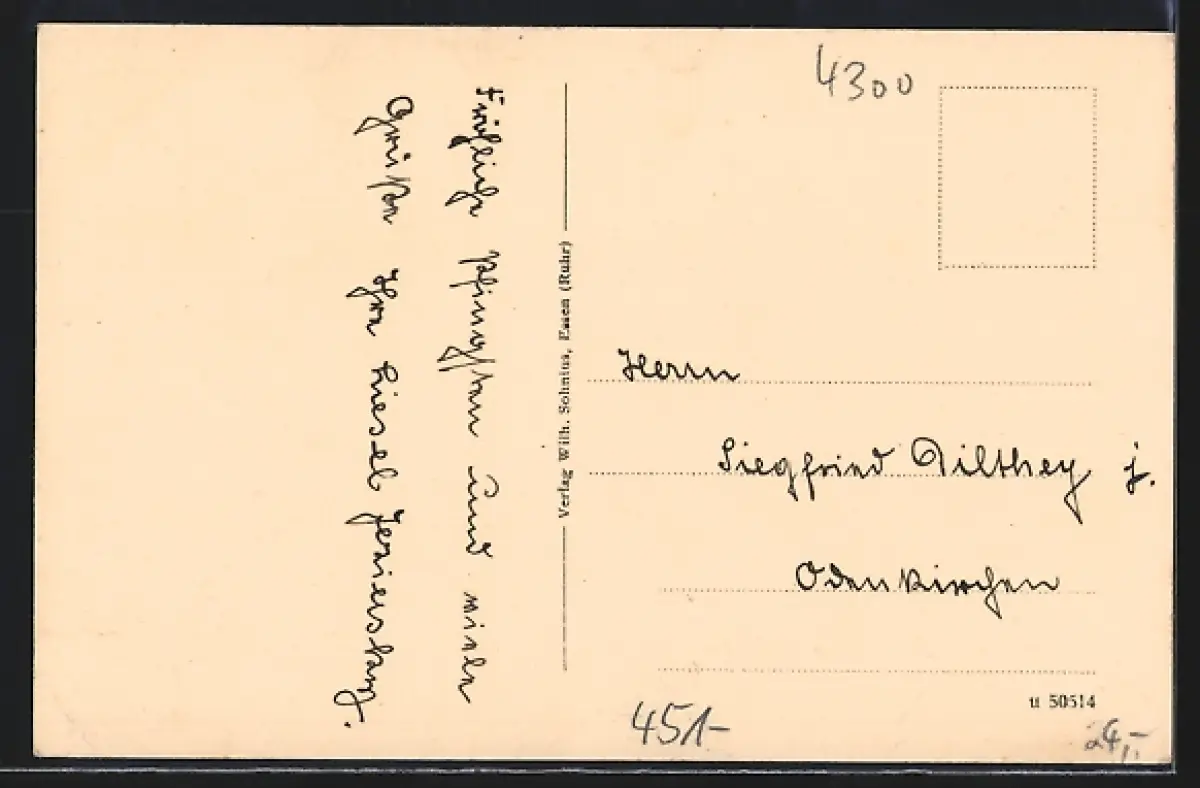 Fröhliche Pfingsten und viele
Grüße Ihre Liesel
Verlag Wilh. Sohnius, Essen (Ruhr)
4300
Herrn
Siegfried Dilthey j.
Odenkirchen
tt 50514
451-
24,-